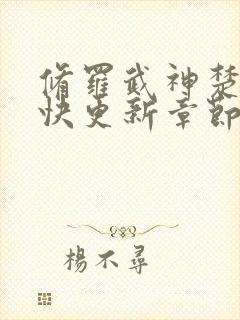 脩羅武神楚
快更新章節
楊不尋